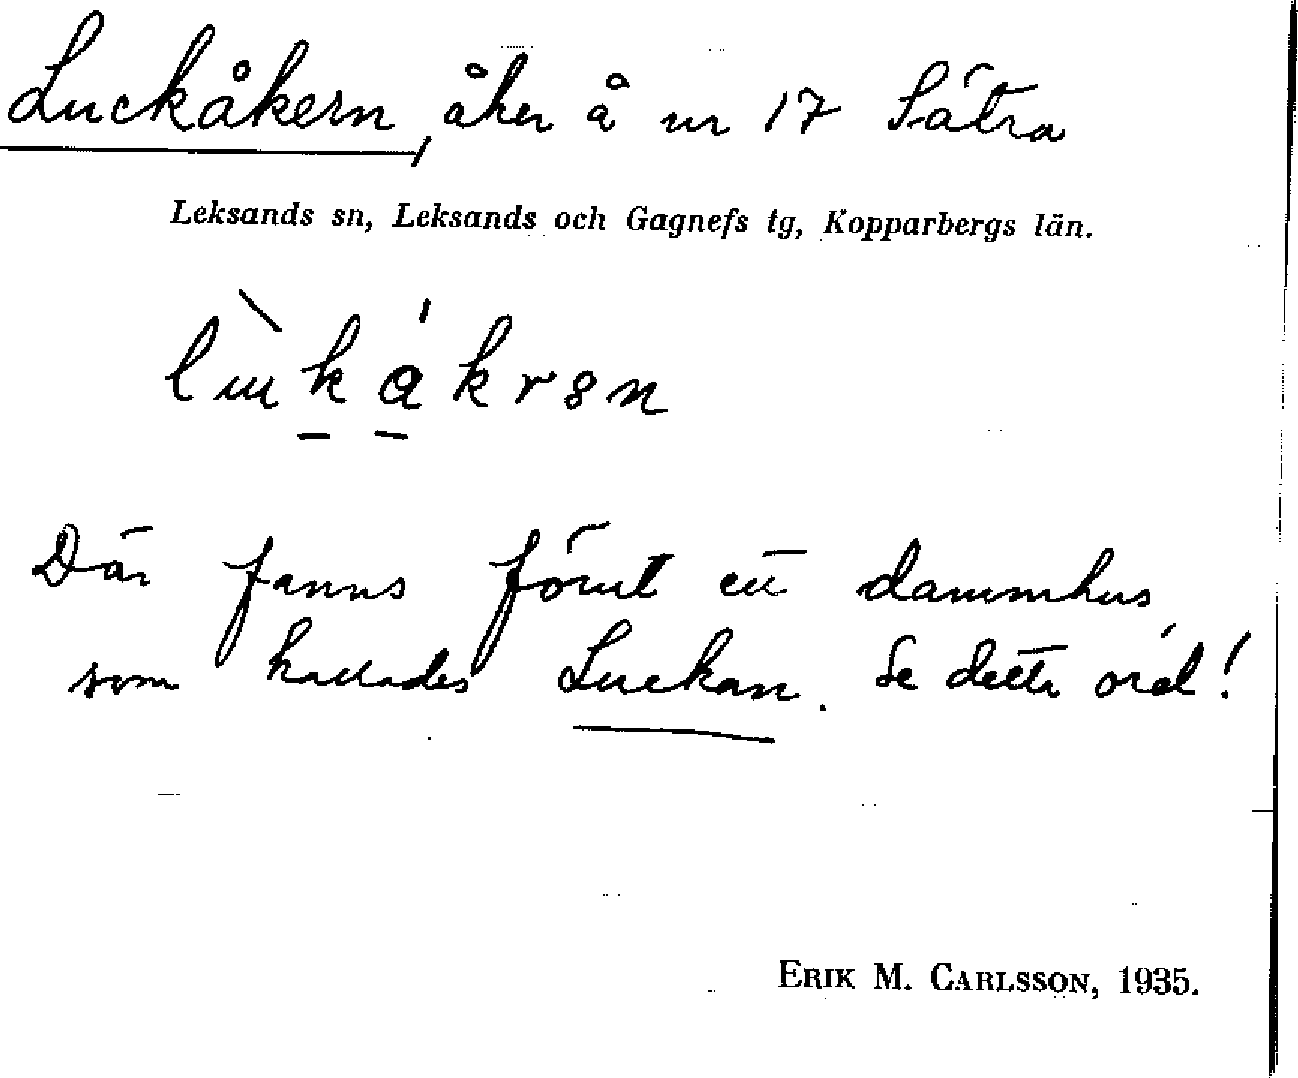 Luckåkern, åker å nr 17 Sätra
Leksands sn, Leksands och Gagnefs tg, Kopparbergs län.
Där fanns förut ett dammhus,
som kallades Luckan. Se detta ord!
ERIK M. CARLSSON, 1935.